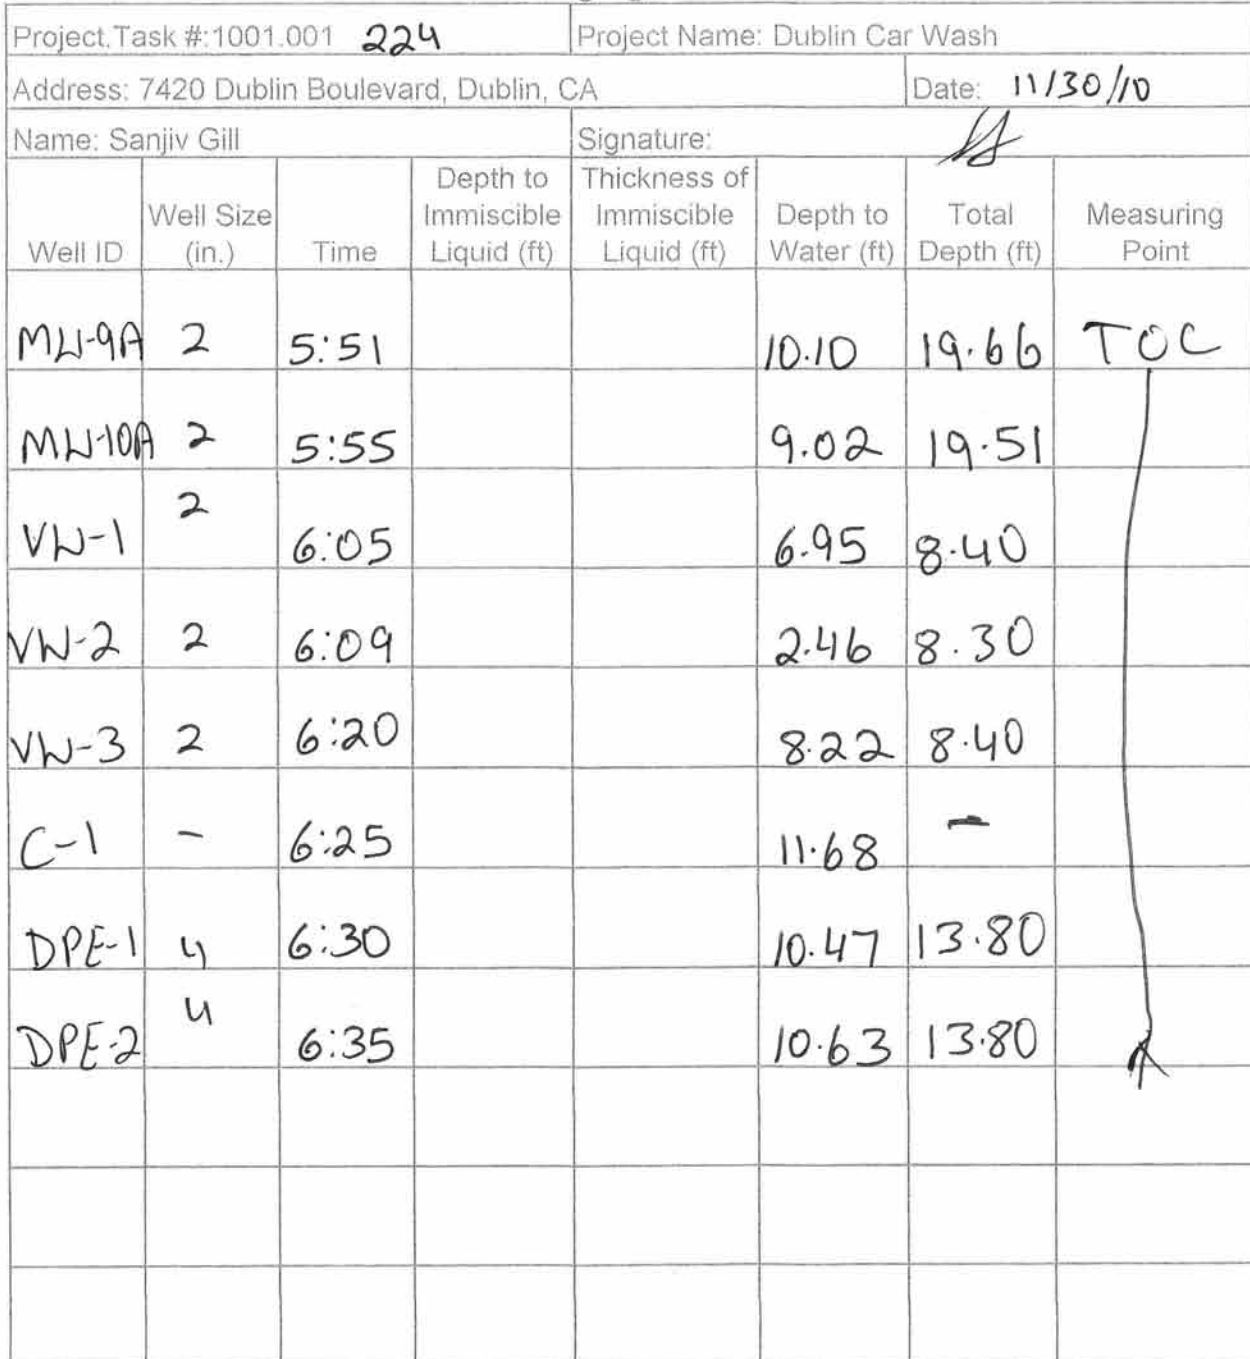 Project.Task #:1001.001 224 Project Name: Dublin Car Wash
Address: 7420 Dublin Boulevard, Dublin, CA Date: 11/30/10
Name: Sanjiv Gill Signature:
Well ID Well Size (in.) Time Depth to Immiscible Liquid (ft) Thickness of Immiscible Liquid (ft) Depth to Water (ft) Total Depth (ft) Measuring Point
MW-9A 2 5:51 10.10 19.66 TOC
MW-10A 2 5:55 9.02 19.51
VW-1 2 6:05 6.95 8.40
VW-2 2 6:09 2.46 8.30
VW-3 2 6:20 8.22 8.40
C-1 - 6:25 11.68 -
DPE-1 4 6:30 10.47 13.80
DPE-2 4 6:35 10.63 13.80